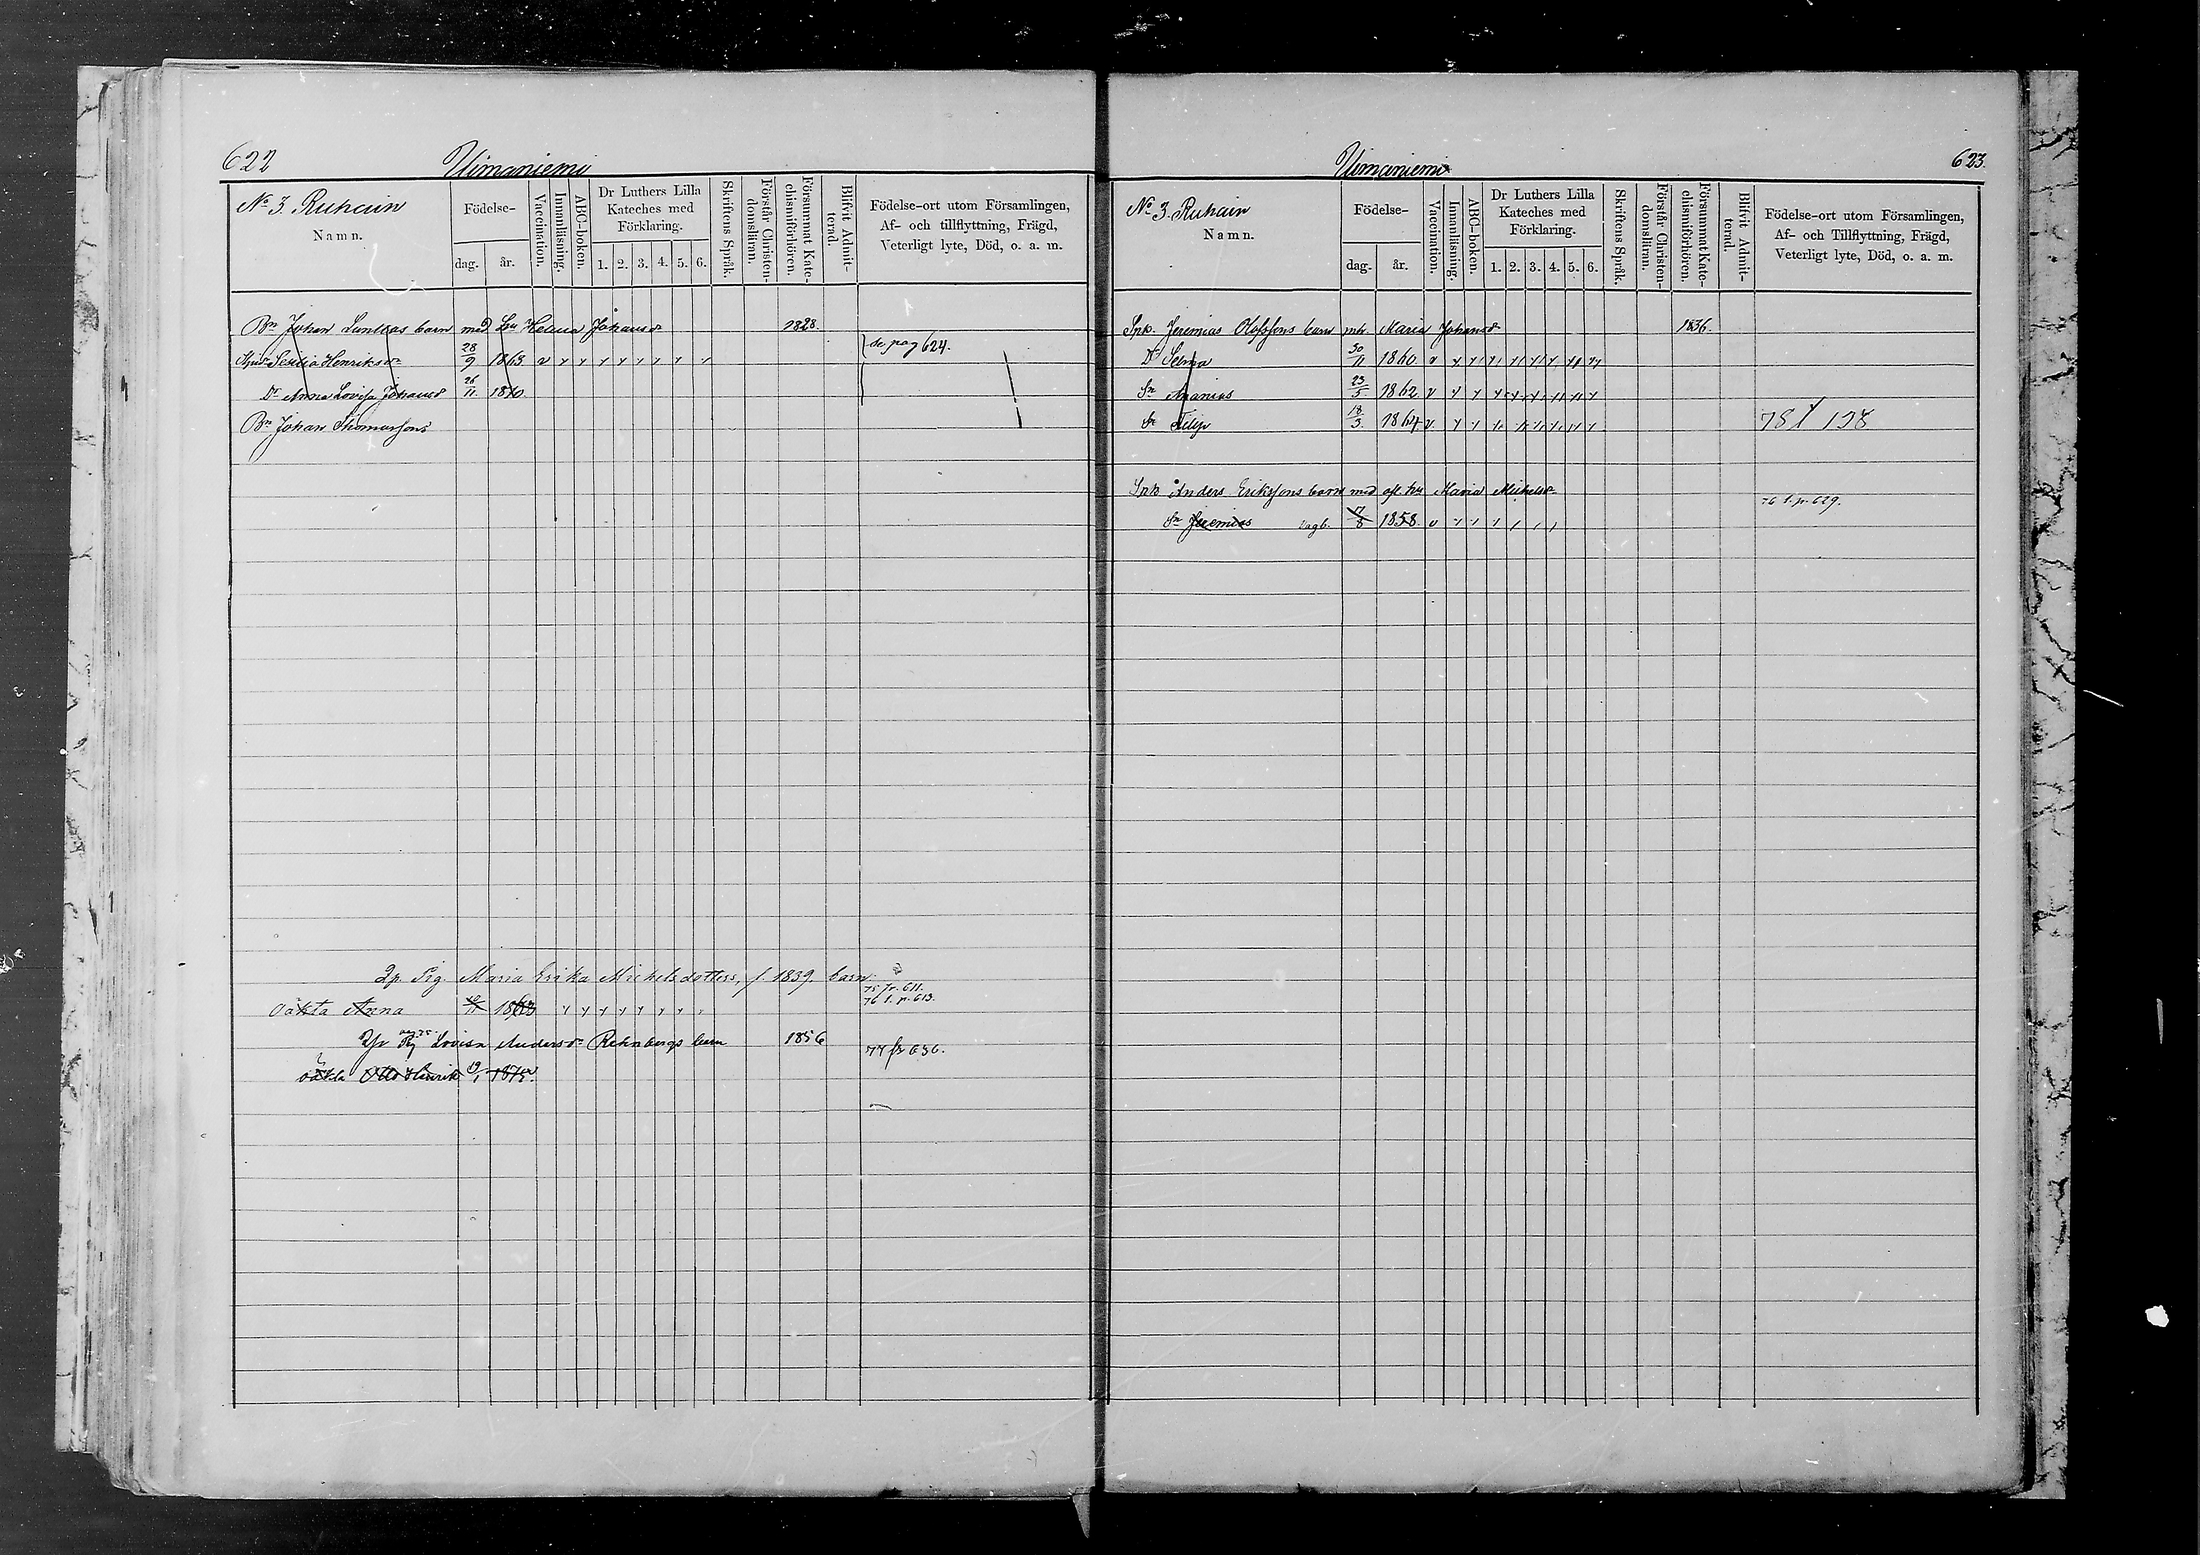 622
Uimaniemi
No 3. Ruhain
Namn.
Födelse-
dag.
år.
Vaccination.
Innanläsning.
ABC-boken.
Dr Luthers Lilla
Kateches med
Förklaring.
1. 2. 3. 4. 5. 6.
Skriftens Språk.
Förstår Christen-
domsläran.
Försummat Kate-
chismiförhören.
Blifvit Admit-
terad.
Födelse-ort utom Församlingen,
Af- och tillflyttning, Frägd,
Veterligt lyte, Död, o. a. m.
Bn Johan barn med Helena Johansdr 1828.
se pag 624.
Henriksdr 28/9 1863 v
Dr Anna Lovisa Johansd 26/11 1870
Bn Johan Thomassons
Maria Erika Michelsdotters, f. 1839. barn
75 fr. 611.
76 t. p. 613.
oäkta Anna 1863
Lovisa Andersdr Rehnbergs barn 1856
77 fr 636.
oäkta Otto Henrik 19/1 1875.
Uimaniemi
623.
No 3. Ruhain
Namn.
Födelse-
dag.
år.
Vaccination.
Innanläsning.
ABC-boken.
Dr Luthers Lilla
Kateches med
Förklaring.
1. 2. 3. 4. 5. 6.
Skriftens Språk.
Förstår Christen-
domsläran.
Försummat Kate-
chismiförhören.
Blifvit Admit-
terad.
Födelse-ort utom Församlingen,
Af- och Tillflyttning, Frägd,
Veterligt lyte, Död, o. a. m.
Inh. Jeremias Olofssons barn Maria Johansdr 1836.
Dr Selma 30/11 1860 v
Sn Ananias 23/5 1862 v
Sn Filip 18/3. 1864 v.
Inh Anders Erikssons barn med Maria Michelsdr
76 t. p. 629.
Sn Jeremias 1858. v